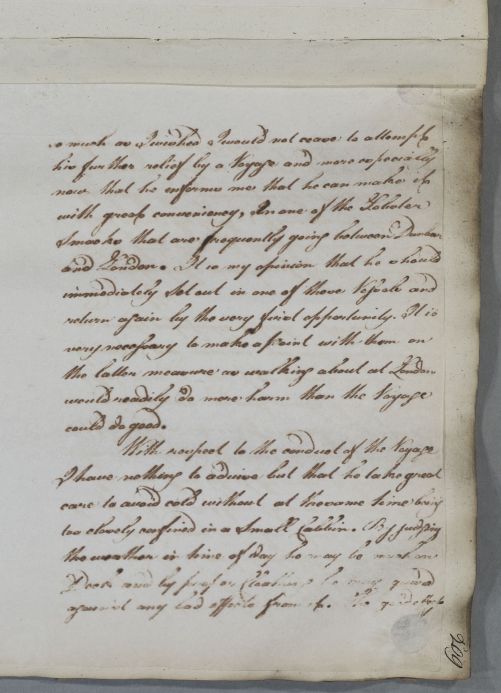 so much as I wished I would not cease to attempt
his further relief by a Voyage and more especially
now that he informs me that he can make it
with great conveniency, in one of the
Smacks that are frequently going between Dunbar
and London. It is my opinion that he should
immediately set out in one of those Vessels and
return again by the very first opportunity. It is
very necessary to make a point with them on
the latter measure as walking about at London
would readily do more harm than the Voyage
could do good.
With respect to the conduct of the Voyage
I have nothing to advise but that he take great
care to avoid cold without at the same time being
too closely confined in a Small Cabbin. By Judging
the weather in time of day he may be much on
Deck and by proper Cloathing he may guard
against any bad effects from it. The
609